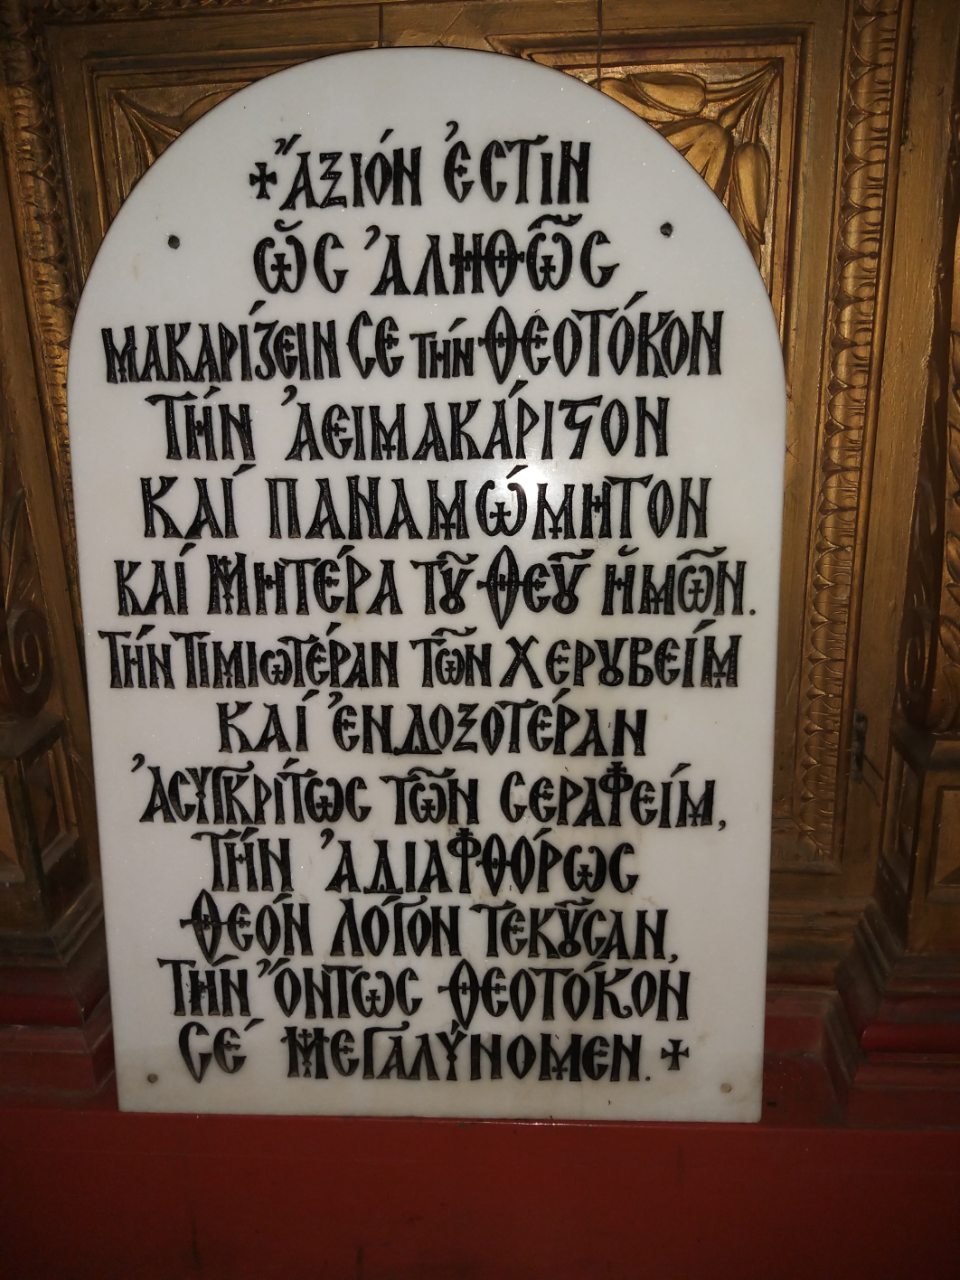 + Ἄξιόν ἐστιν
ὡς ἀληθῶς
μακαρίζειν σε τήν Θεοτόκον
τήν ἀειμακάριστον
καί παναμώμητον
καί Μητέρα τοῦ Θεοῦ ἡμῶν.
τήν τιμιωτέραν τῶν Χερουβείμ
καί ἐνδοξοτέραν
ἀσυγκρίτως τῶν Σεραφείμ,
τήν ἀδιαφθόρως
Θεόν Λόγον τεκοῦσαν,
τήν ὄντως Θεοτόκον
σέ μεγαλύνομεν. +